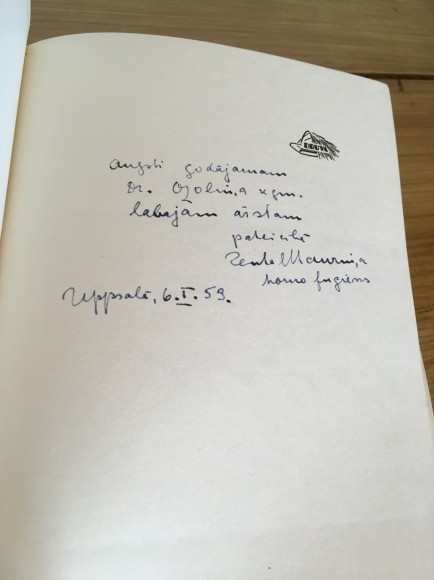 DRUVA
Augsti godājamam
Dr. Ozoliņa kgm.
labajām ārstam
pateicībā
Zenta Mauriņa
homo fugiens
Uppsalā, 6.I.59.